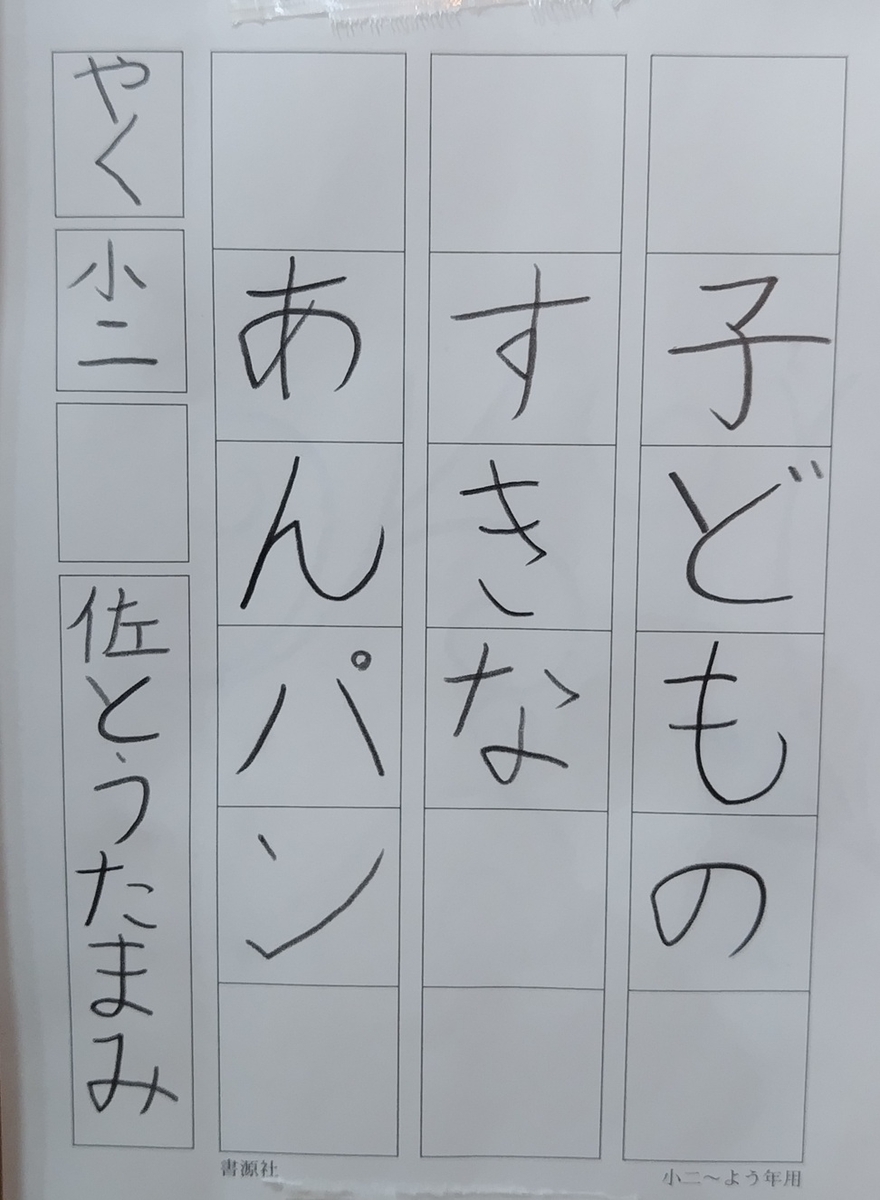 子どもの
すきな
あんパン
やく 小二 佐とうたまみ
書源社
小二～よう年用